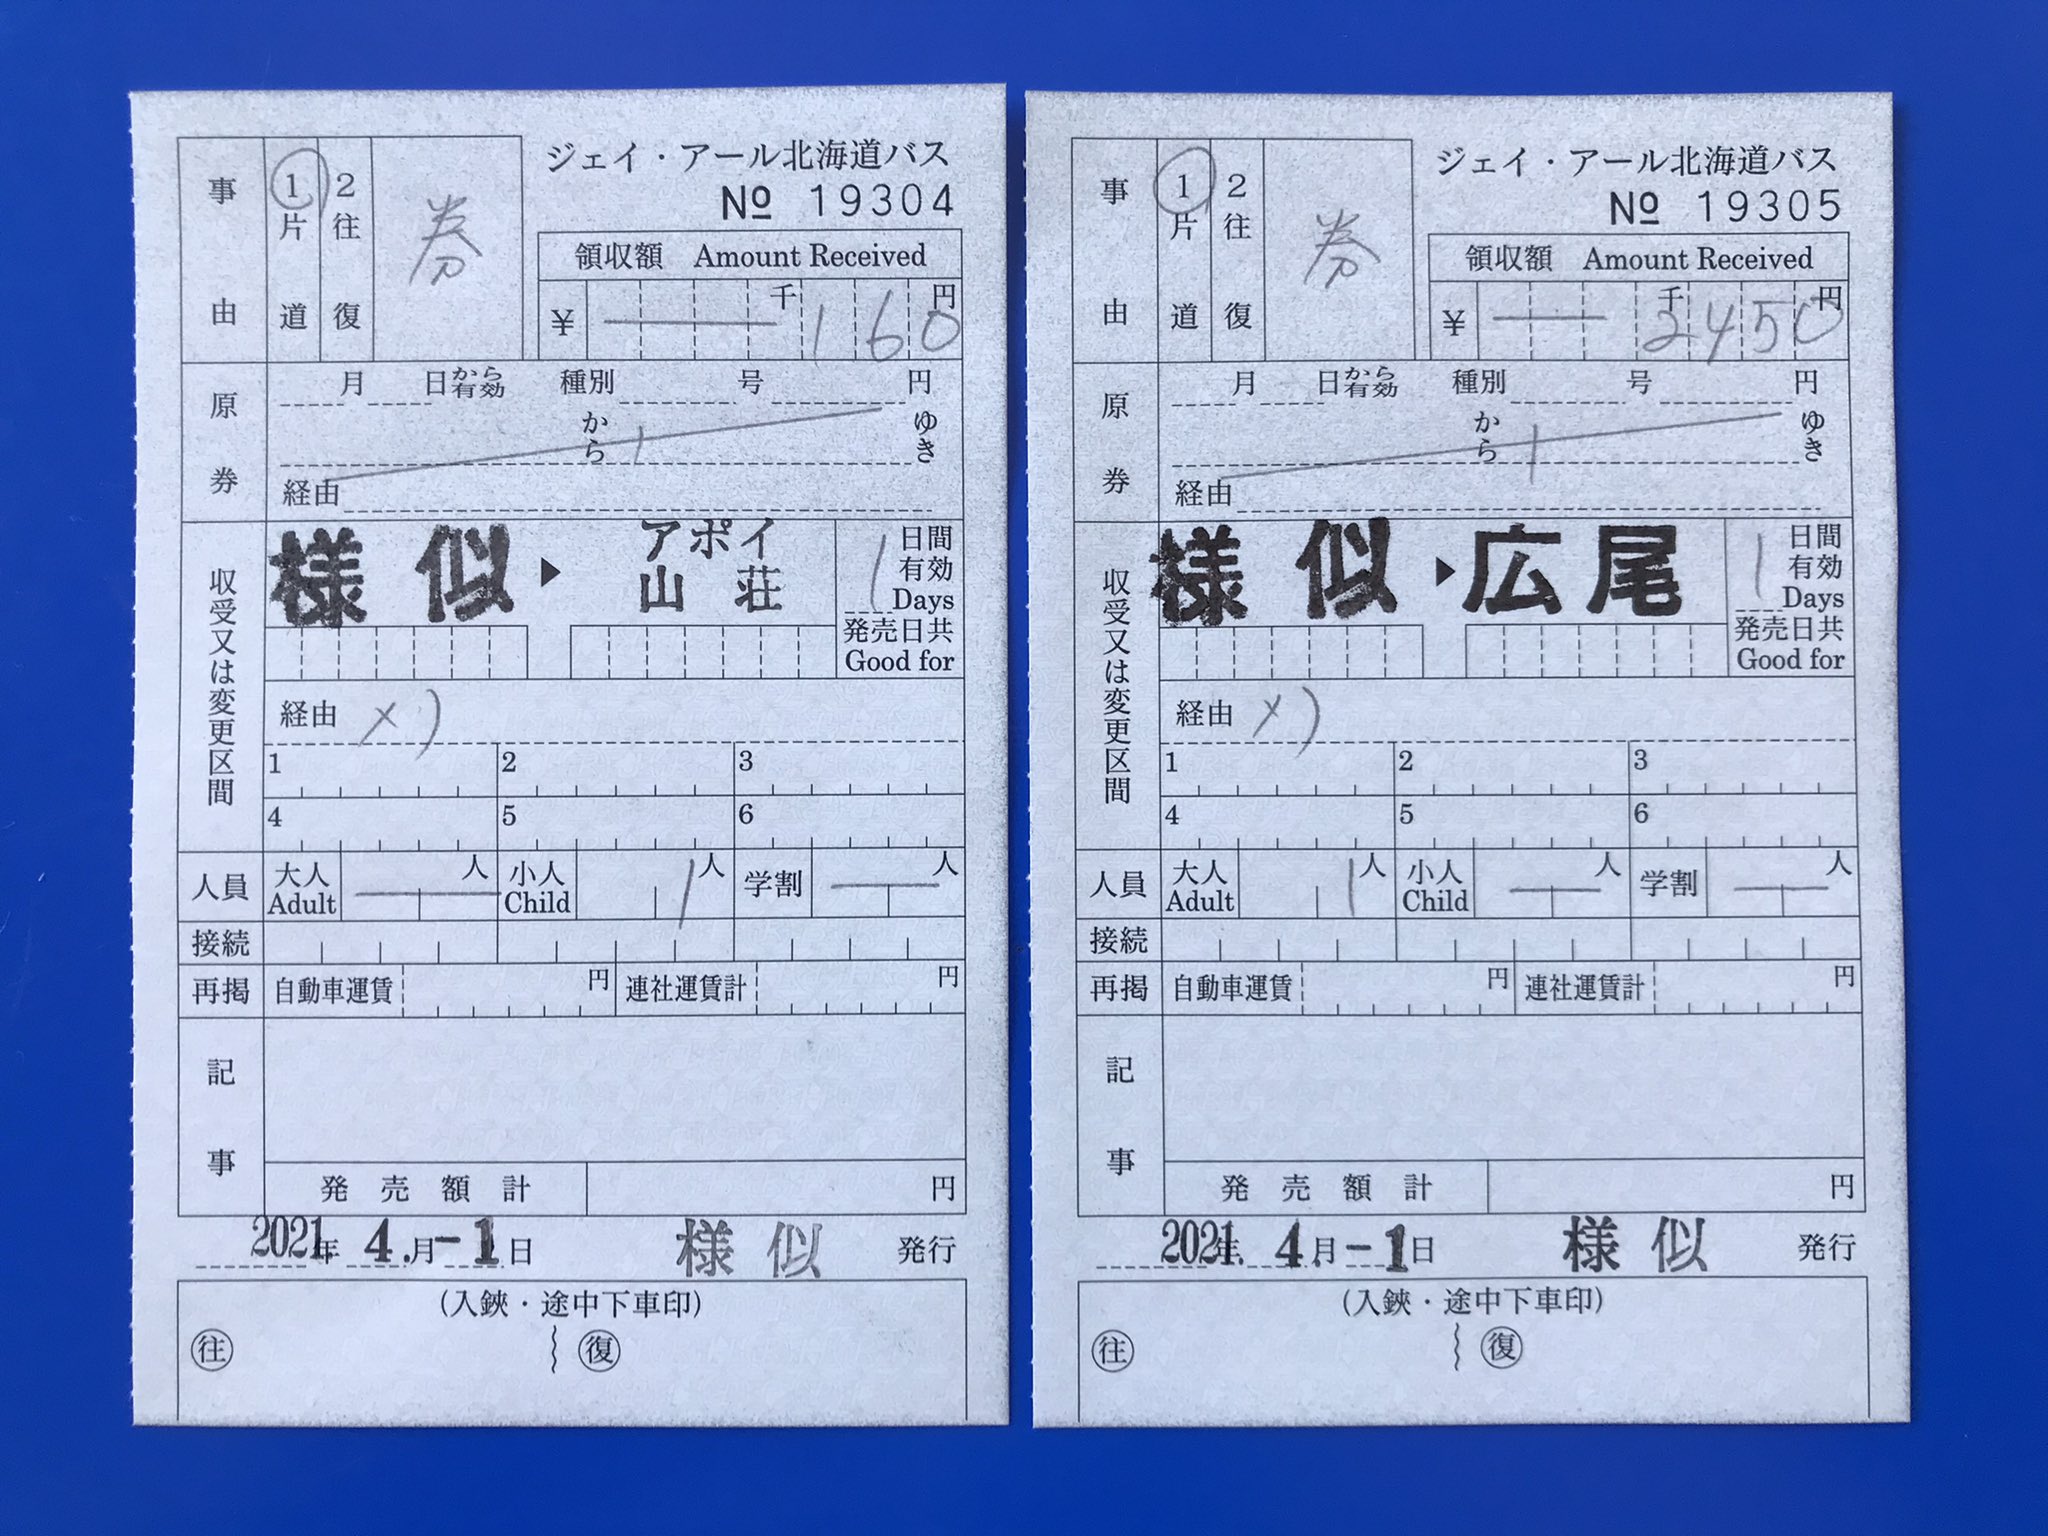 事由
1 片道
2 往復
券
ジェイ・アール北海道バス
№ 19304
領収額 Amount Received
¥ 千 160 円
原券
月 日から有効 種別 号 円
から ゆき
経由
収受又は変更区間
様似 ▶ アポイ山荘
1 日間有効 Days
発売日共 Good for
経由 メ)
1 2 3
4 5 6
人員 大人 Adult 人 小人 Child 1 人 学割 人
接続
再掲 自動車運賃 円 連社運賃計 円
記事
発売額計 円
2021.年 4.月 -1日 様似 発行
(入鋏・途中下車印)
往 復
事由
1 片道
2 往復
券
ジェイ・アール北海道バス
№ 19305
領収額 Amount Received
¥ 千 2450 円
原券
月 日から有効 種別 号 円
から ゆき
経由
収受又は変更区間
様似 ▶ 広尾
1 日間有効 Days
発売日共 Good for
経由 メ)
1 2 3
4 5 6
人員 大人 Adult 1 人 小人 Child 人 学割 人
接続
再掲 自動車運賃 円 連社運賃計 円
記事
発売額計 円
2021.年 4.月 -1日 様似 発行
(入鋏・途中下車印)
往 復